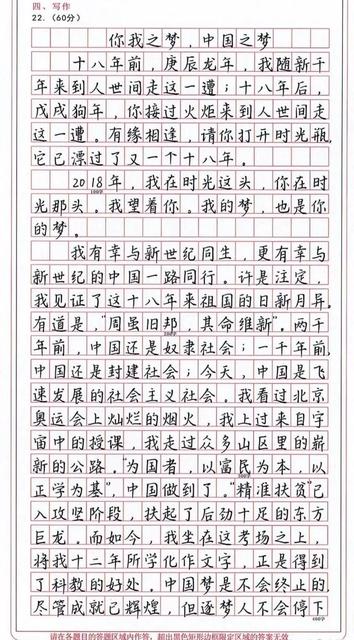 四、写作
22.（60分）
你我之梦，中国之梦
十八年前，庚辰龙年，我随新千
年来到人世间走这一遭；十八年后，
戊戌狗年，你接过火炬来到人世间走
这一遭。有缘相逢，请你打开时光瓶，
它已漂过了又一个十八年。
2018年，我在时光这头，你在时
100字
光那头。我望着你。我的梦，也是你
的梦。
我有幸与新世纪同生，更有幸与
新世纪的中国一路同行。许是注定，
我见证了这十八年来祖国的日新月异。
有道是，“周虽旧邦，其命维新”。两千
年前，中国还是奴隶社会；一千年前，
中国还是封建社会；今天，中国是飞
速发展的社会主义社会。我看过北京
奥运会上灿烂的烟火，我上过来自宇
宙中的授课，我走过众多山区里的崭
新的公路。“为国者，以富民为本，以
正学为基”，中国做到了。“精准扶贫”已
入攻坚阶段，扶起了后劲十足的东方
巨龙。而如今，我坐在这考场之上，
将我十二年所学化作文字，正是得到
了科教的好处。中国梦是不会终止的，
尽管成就已辉煌，但逐梦人不会停下
400字
请在各题目的答题区域内作答，超出黑色矩形边框限定区域的答案无效